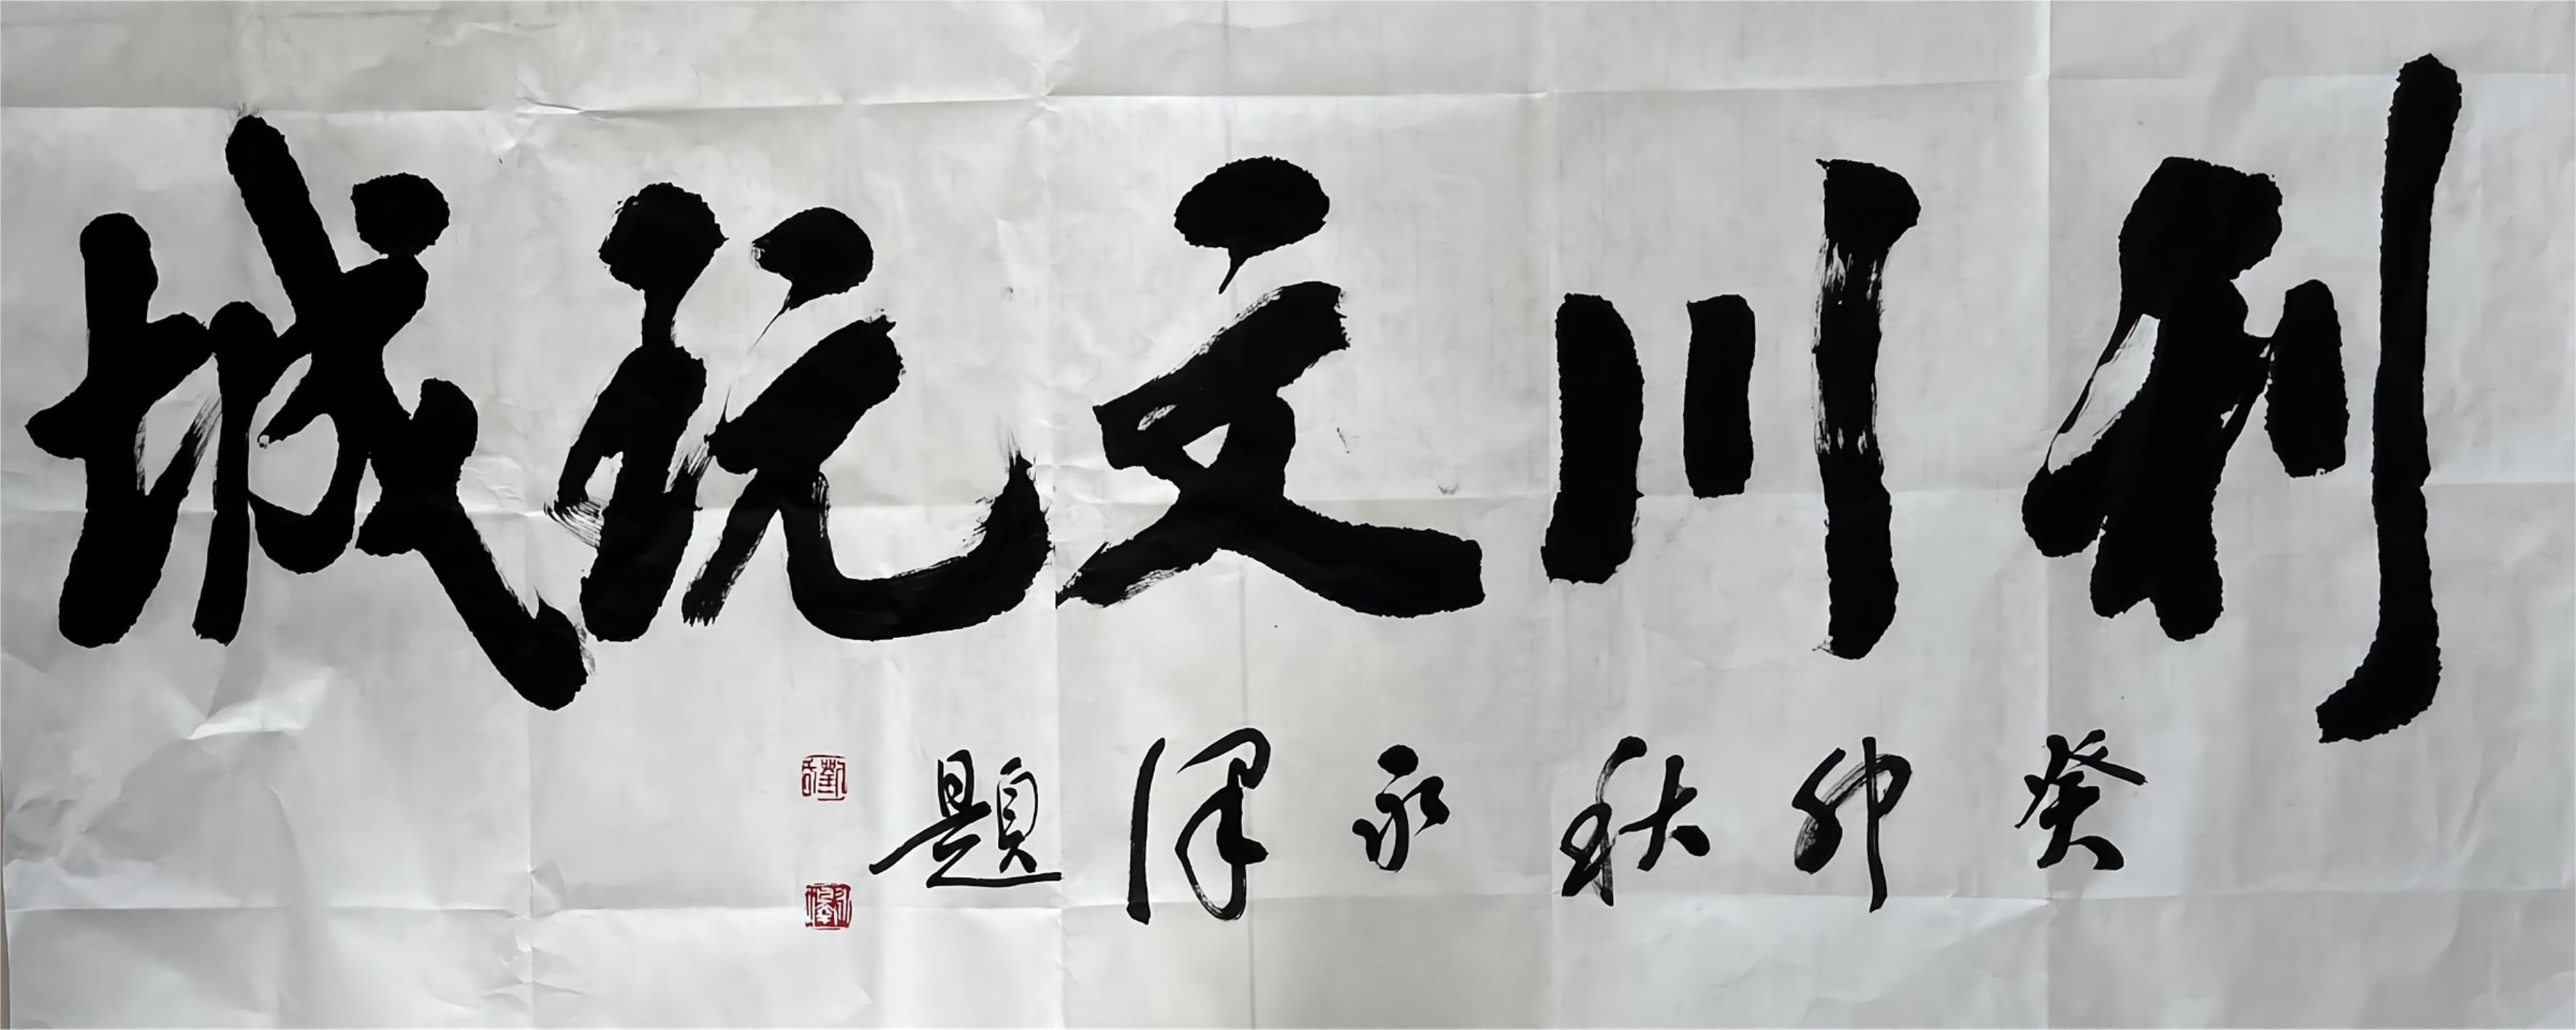 利川文玩城
癸卯秋永泽題